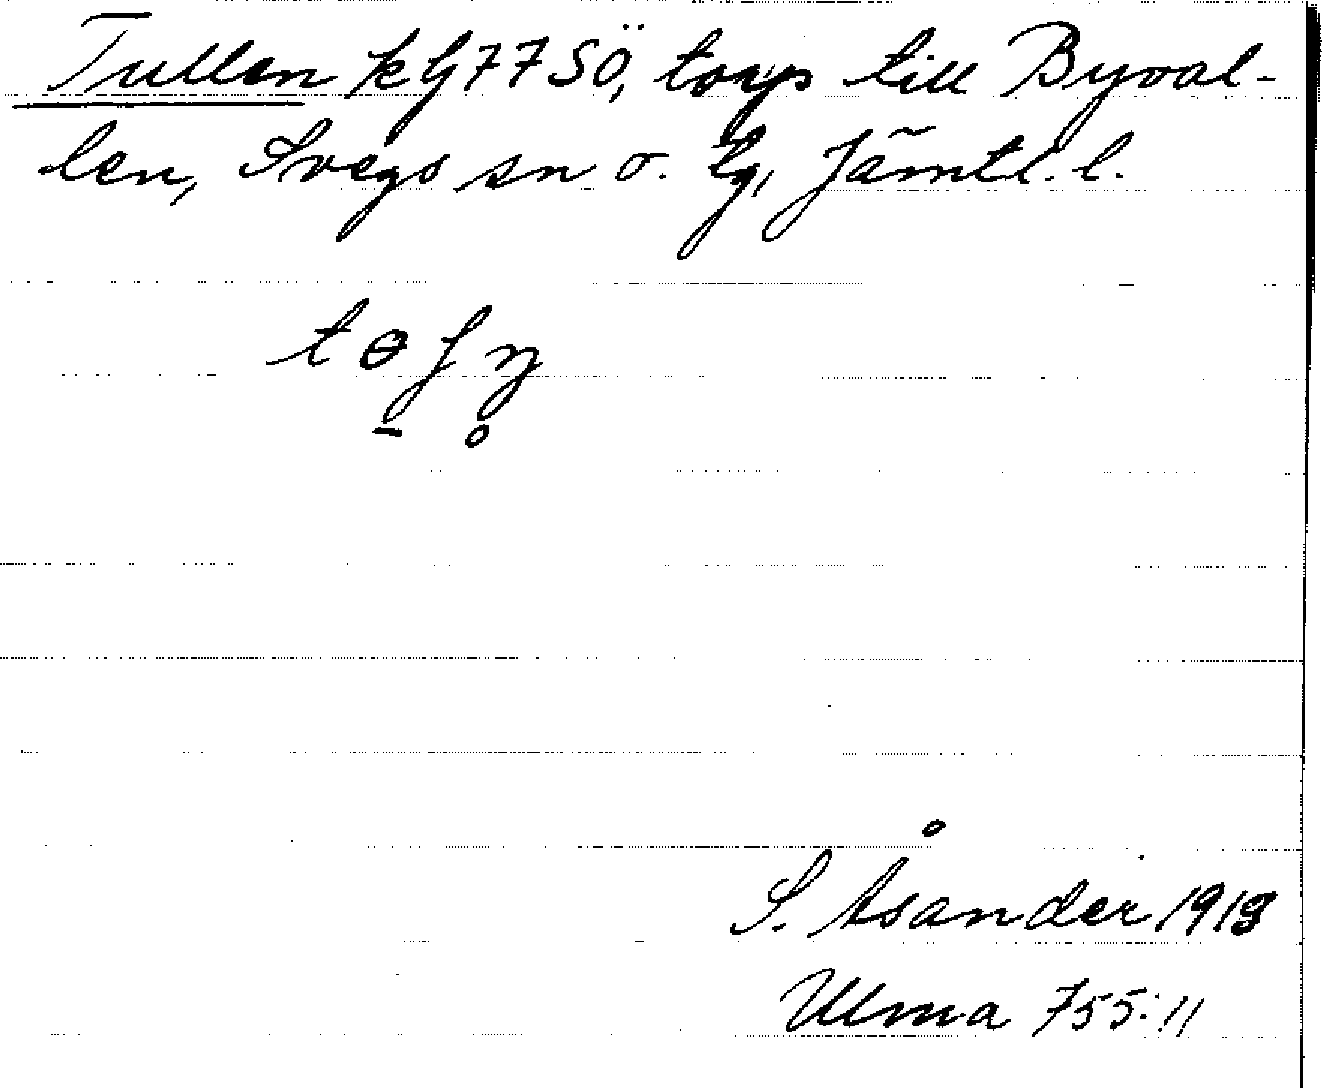 Tullen kG77SÖ, torp till Byval-
len, Svegs sn o. tg, Jämtl. l.
S. Åsander 1918
Ulma 755:11